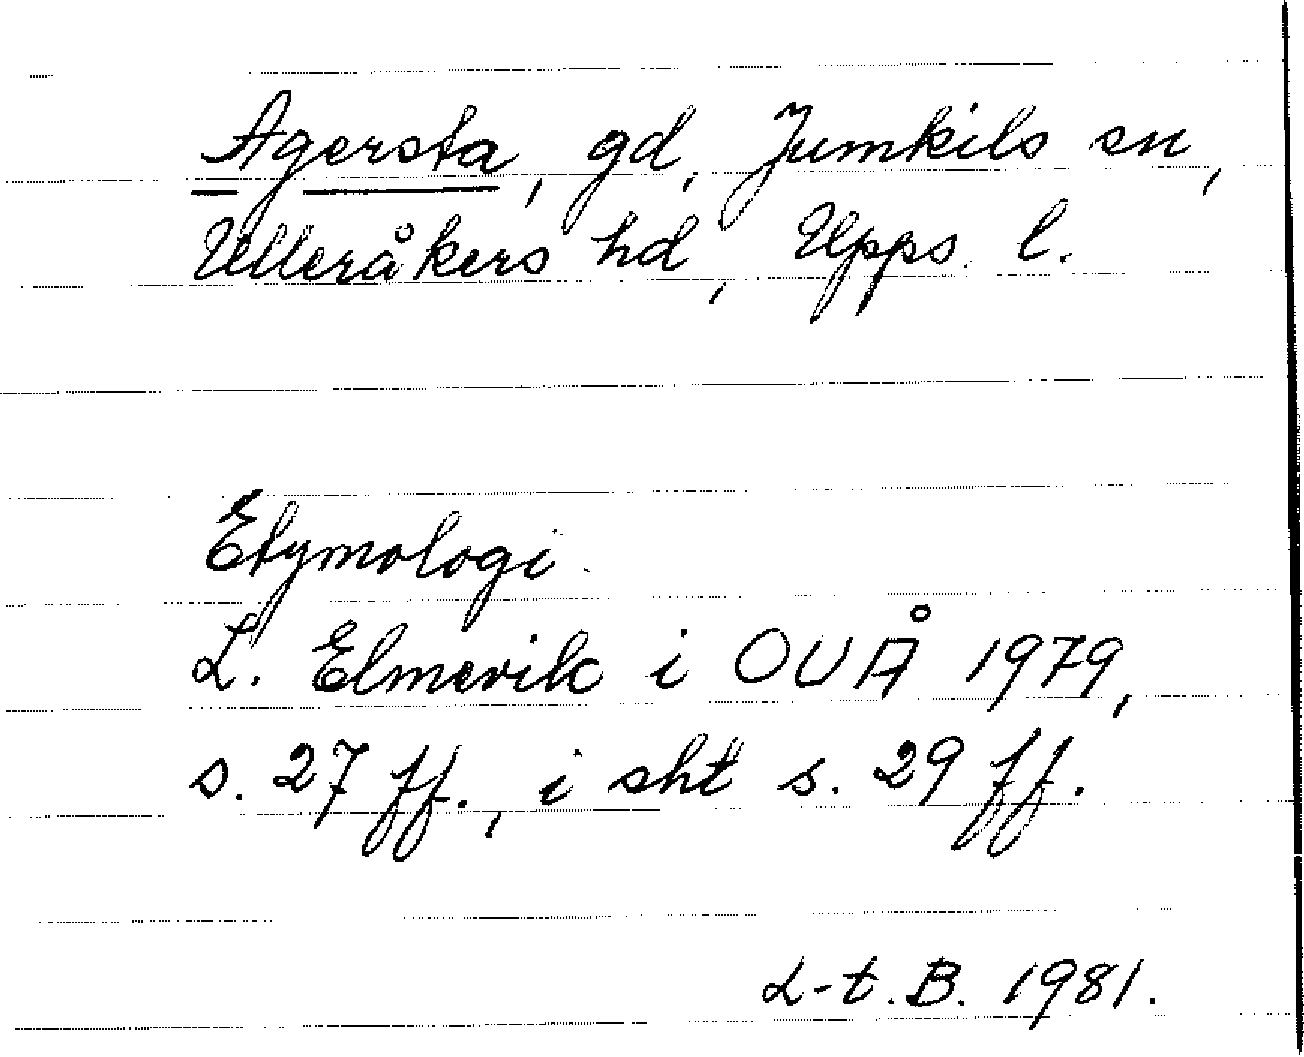 Agersta, gd, Jumkils sn,
Ulleråkers hd, Upps. l.
Etymologi.
L. Elmevik i OUÅ 1979,
s. 27 ff., i sht s. 29 ff.
L-t. B. 1981.